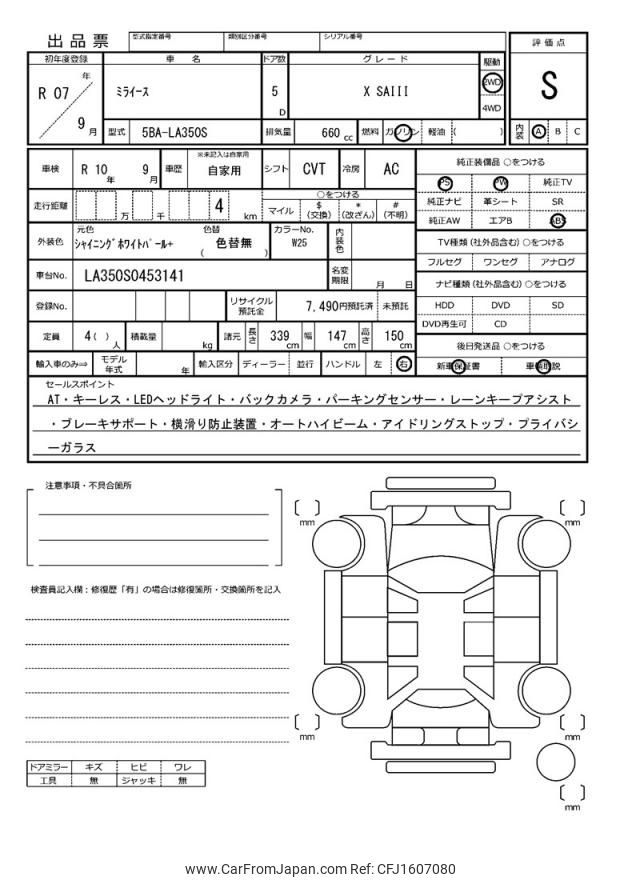 出品票
型式指定番号 類別区分番号 シリアル番号
評価点
S
内装 A B C
初年度登録 車名 ドア数 グレード 駆動
R 07 年 9 月
ミライース
5 D
X SAIII
2WD
4WD
型式 5BA-LA350S 排気量 660 cc 燃料 ガソリン 軽油 ( )
車検 R 10 年 9 月 車歴 ※未記入は自家用 自家用 シフト CVT 冷房 AC
走行距離 万 千 4 km
○をつける
マイル $(交換) *(改ざん) #(不明)
外装色 元色 シャイニングホワイトパール+ 色替 ( 色替無 )
カラーNo. W25 内装色
車台No. LA350S0453141 名変期限 月 日
登録No. リサイクル預託金 7,490円預託済 未預託
定員 4( ) 人 積載量 kg 諸元 長さ 339 cm 幅 147 cm 高さ 150 cm
輸入車のみ⇒ モデル年式 年 輸入区分 ディーラー 並行 ハンドル 左 右
純正装備品 ○をつける
PS PW 純正TV
純正ナビ 革シート SR
純正AW エアB ABS
TV種類(社外品含む)○をつける
フルセグ ワンセグ アナログ
ナビ種類(社外品含む)○をつける
HDD DVD SD
DVD再生可 CD
後日発送品 ○をつける
新車保証書 車輌取説
セールスポイント
AT・キーレス・LEDヘッドライト・バックカメラ・パーキングセンサー・レーンキープアシスト
・ブレーキサポート・横滑り防止装置・オートハイビーム・アイドリングストップ・プライバシ
ーガラス
注意事項・不具合箇所
検査員記入欄:修復歴「有」の場合は修復箇所・交換箇所を記入
mm mm
mm mm
mm
ドアミラー キズ ヒビ ワレ
工具 無 ジャッキ 無
www.CarFromJapan.com Ref: CFJ1607080